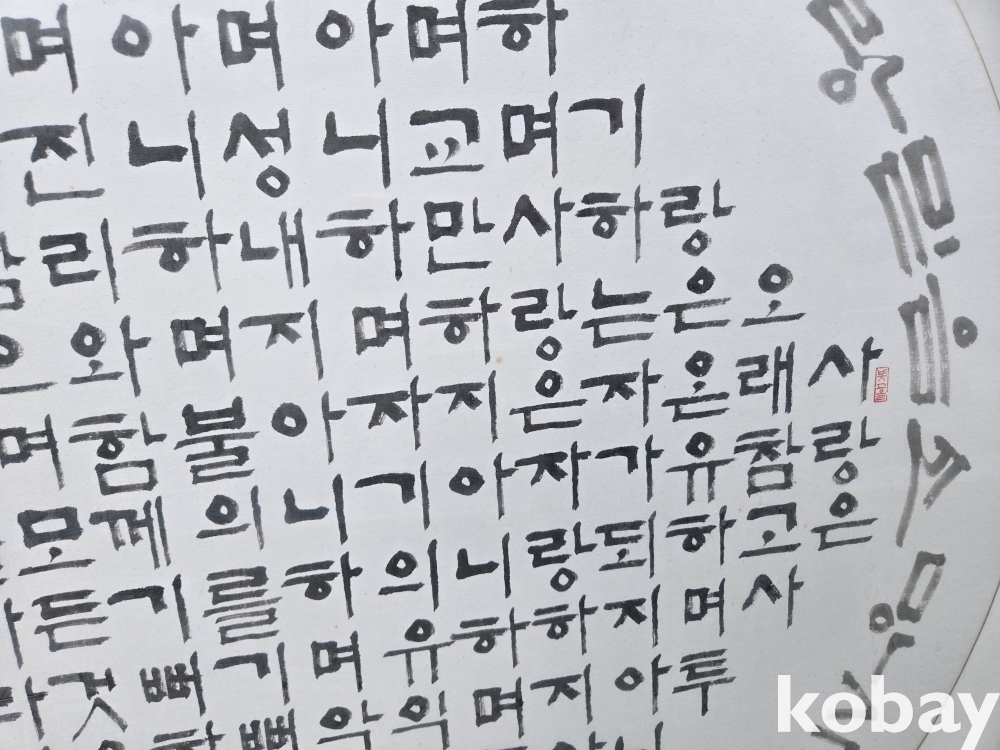 랑믿음소망
사랑은
오래참고사
랑은온유하며투
기하는자가되지아니
하며사랑은자랑하지아
며교만하지아니하며
아니하며자기의유익
며성내지아니하며악
아니하며불의를기뻐
며진리와함께기뻐하
며모든것
kobay